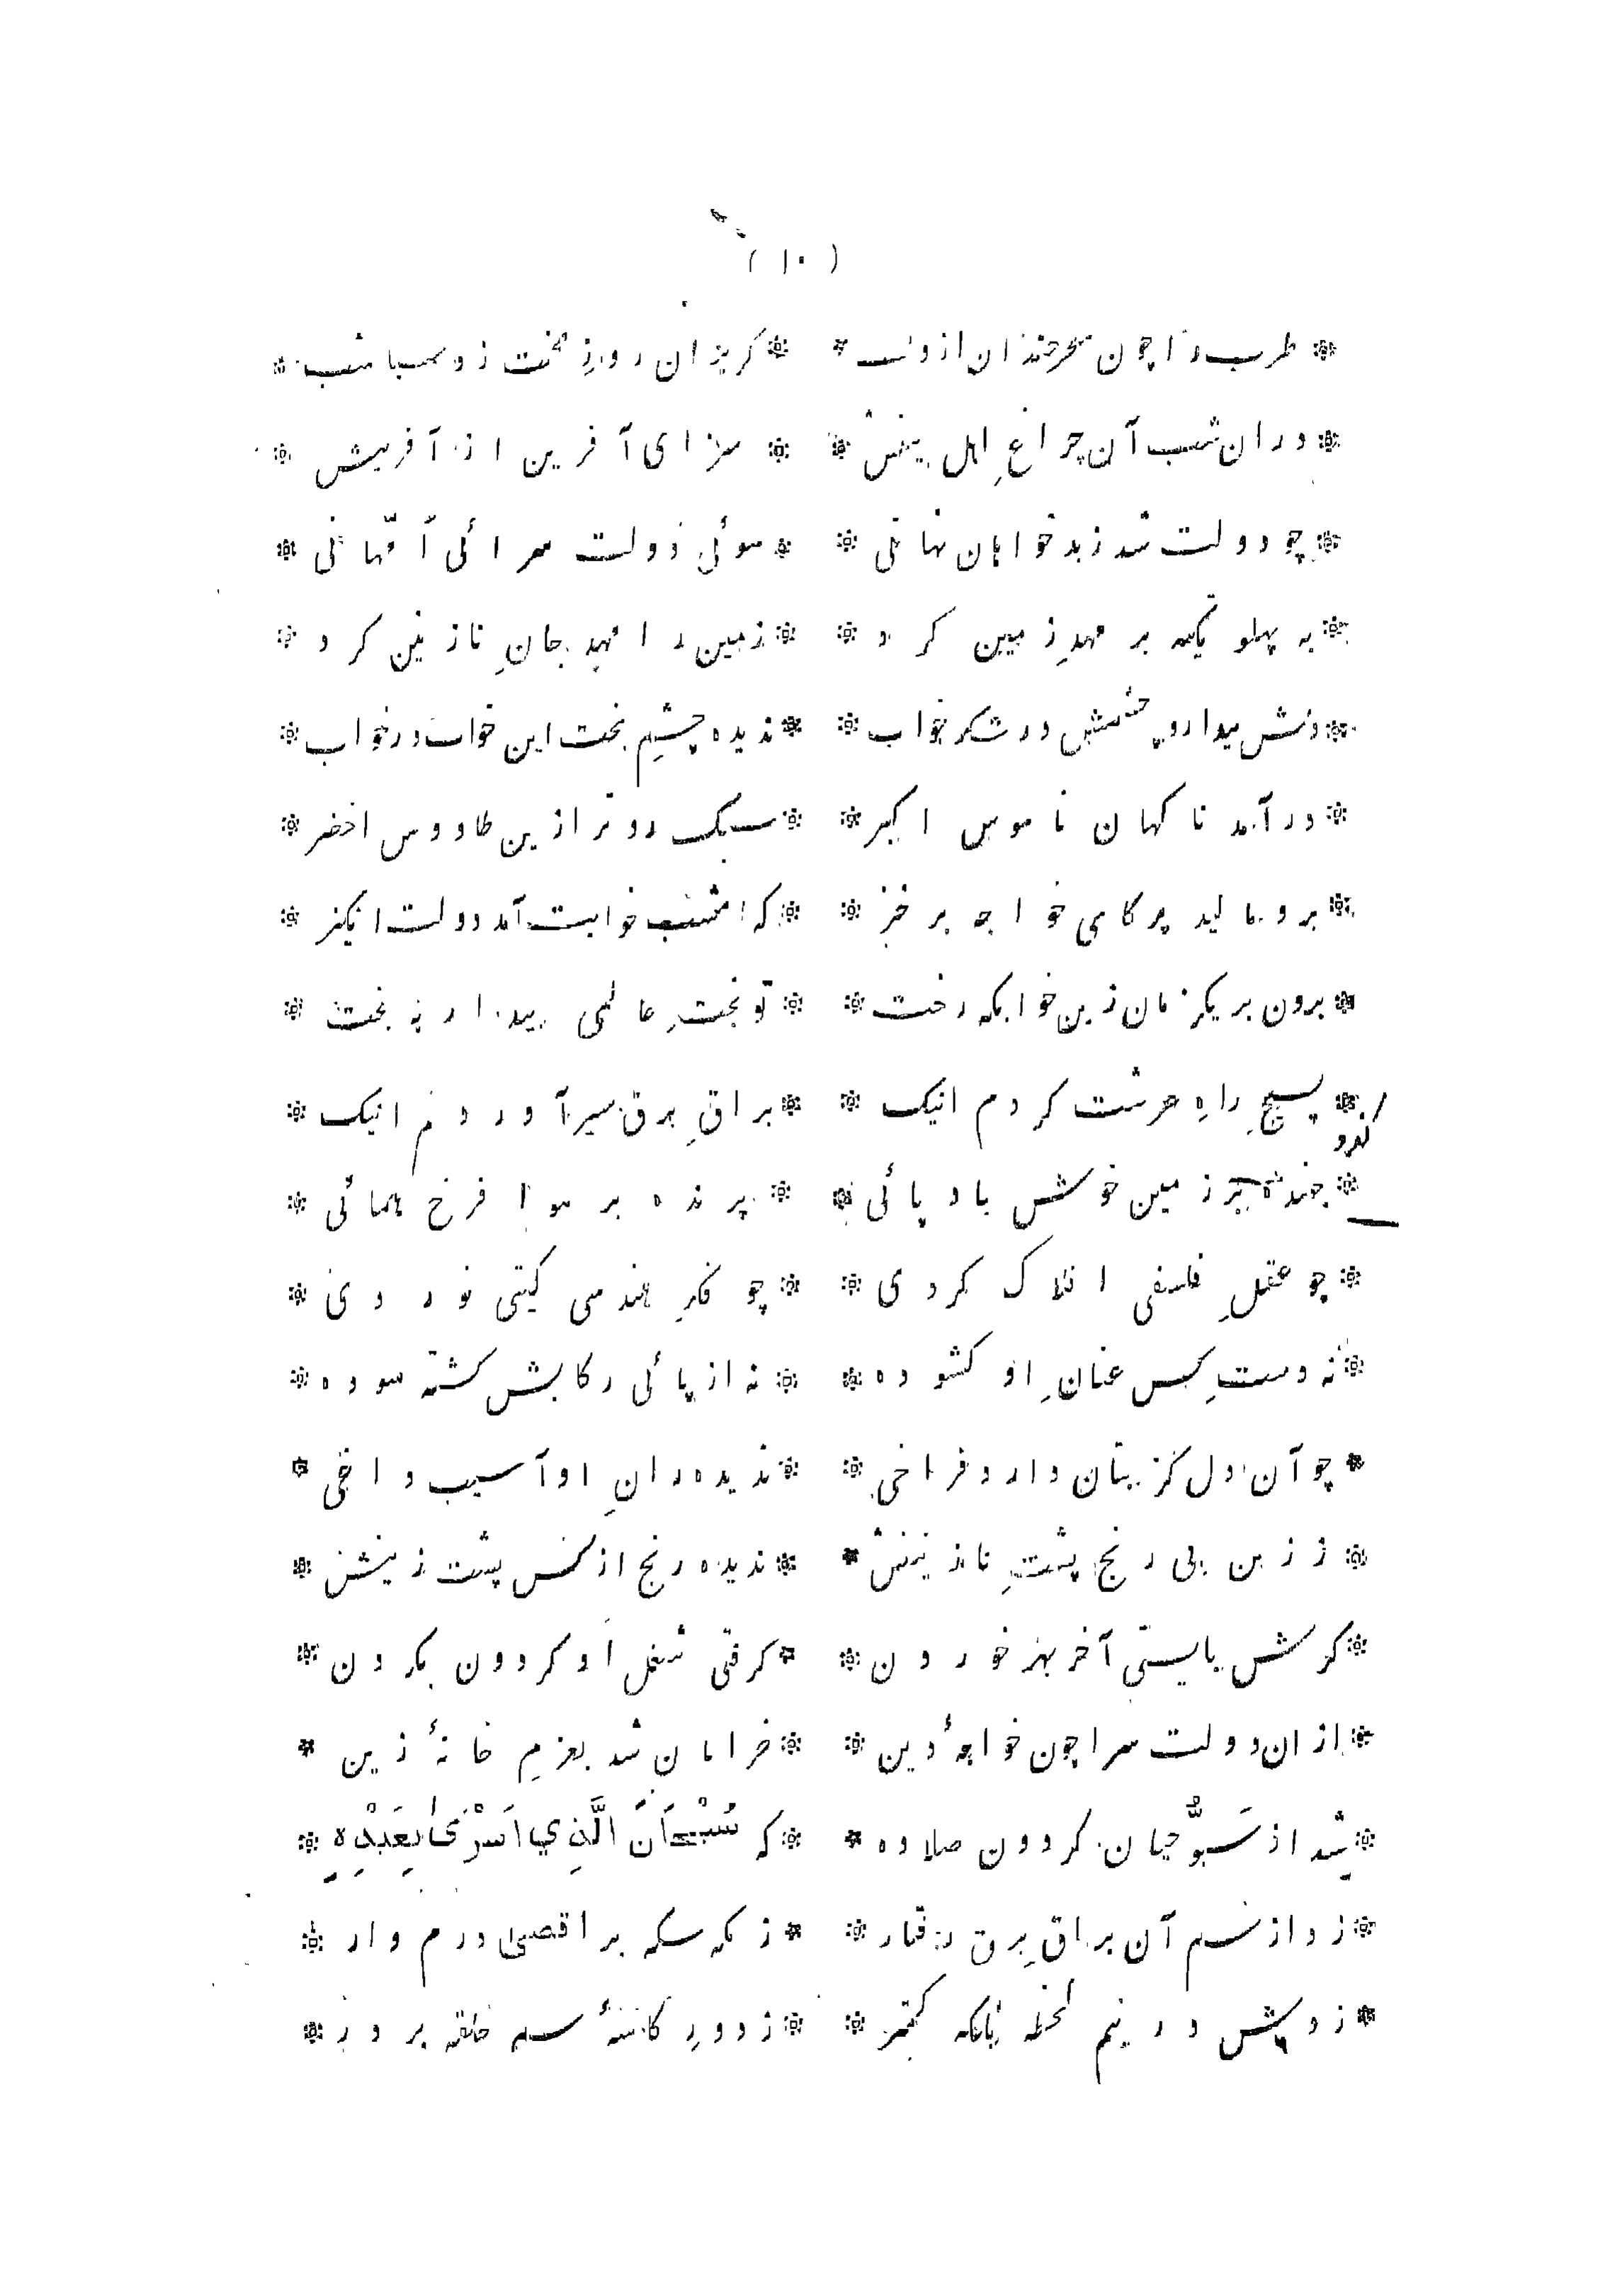 ( ۱۰ )
* طرب را چون سحر خندان ازو لب * * کریزان روز محنت زو سبا شب *
* دران شب آن چراغِ اهل بینش * * سزای آفرین از آفرینش *
* چو دولت شد زبدخواهان نهانی * * سوئی دولت سرائی اُمّ هانی *
* به پهلو تکیه بر مهدِ زمین کرد * * زمین را مهدِ جانِ نازنین کرد *
* دلش بیدار و چشمش در شکر خواب * * ندیده چشمِ بخت این خواب در خواب *
* درآمد ناکهان ناموس اکبر * * سبک رو تر ازین طاووس اخضر *
* برو مالید پر کای خواجه برخیز * * که امشب خوابت آمد دولت انکیز *
* برون بر یکزمان زین خوابکه رخت * * تو بختِ عالمی بیدار به بخت *
* پسیچِ راهِ عرشت کردم اینک * * براقِ برق سیر آوردم اینک *
* جهنده بر زمین خوش باد پائی * * پرنده بر هوا فرخ همائی *
* چو عقلِ فلسفی افلاک کردی * * چو فکرِ هندسی کیتی نوردی *
* نه دستِ کس عنانِ او کشوده * * نه از پائی رکابش کشته سوده *
* چو آن دل کز بتان دارد فراخی * * ندیده رانِ او آسیب داغی *
* ز زین بی رنج پشتِ نازنینش * * ندیده رنج از کس پشت زینش *
* کرش بایستی آخر بهر خوردن * * کرفتی شغل او کردون بکردن *
* ازان دولت سرا چون خواجهٔ دین * * خرامان شد بعزمِ خانهٔ زین *
* شد از سَبوُّحیان کردون صلاده * * که سُبْحَانَ الَّذِي اَسْرَىٰ بِعَبْدِهِ *
* زد از سم آن براقِ برق رفتار * * ز مکه سکه بر اقصیٰ درم وار *
* زدش در نیم لحظه بلکه کمتر * * ز دورِ کاسهٔ سم حلقه بر در *